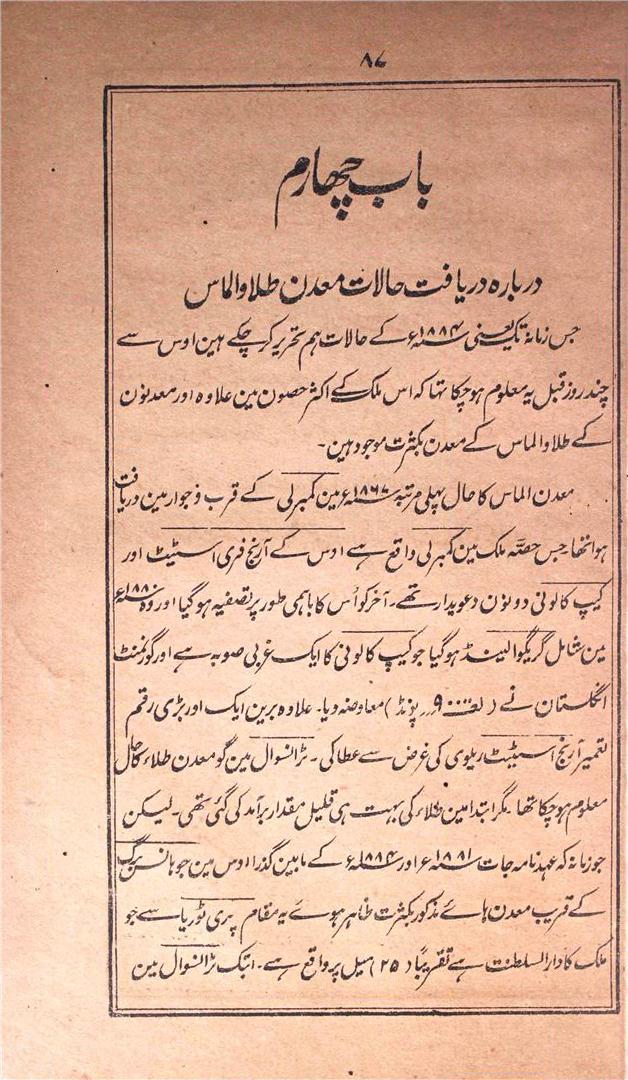 ۸۷
باب چهارم
درباره دریافت حالات معدن طلا و الماس
جس زمانہ تک یعنی ۱۸۸۴ء کے حالات ہم تحریر کر چکے ہین اوس سے
چند روز قبل یہ معلوم ہو چکا تہا کہ اس ملک کے اکثر حصون مین علاوہ اور معدنون
کے طلا و الماس کے معدن بکثرت موجود ہین۔
معدن الماس کا حال پہلی مرتبہ ۱۸۶۷ء مین کمبرلی کے قرب و جوار مین دریافت
ہوا تھا۔ جس حصّہ ملک مین کمبرلی واقع ہے اوس کے آرنج فری اسٹیٹ اور
کیپ کالونی دونون دعویدار تھے۔ آخر کو اُس کا باہمی طور پر تصفیہ ہو گیا اور وہ ۱۸۸۰ء
مین شامل گریگوا لینڈ ہو گیا جو کیپ کالونی کا ایک غربی صوبہ ہے اور گورنمنٹ
انگلستان نے ( پونڈ ) معاوضہ دیا۔ علاوہ برین ایک اور بڑی رقم
تعمیر آرنج اسٹیٹ ریلوی کی غرض سے عطا کی۔ ٹرانسوال مین گو معدن طلاء کا حال
معلوم ہو چکا تھا۔ مگر ابتدا مین طلاء کی بہت ہی قلیل مقدار برآمد کی گئی تھی۔ لیکن
جو زمانہ کہ عہدنامہ جات ۱۸۸۱ء اور ۱۸۸۴ء کے مابین گذرا اوس مین جوہانسبرگ
کے قریب معدن ہائے مذکور بکثرت ظاہر ہوئے یہ مقام پری ٹوریا سے جو
ملک کا دارالسلطنت ہے تقریباً (۲۵) میل پر واقع ہے۔ ابتک ٹرانسوال مین